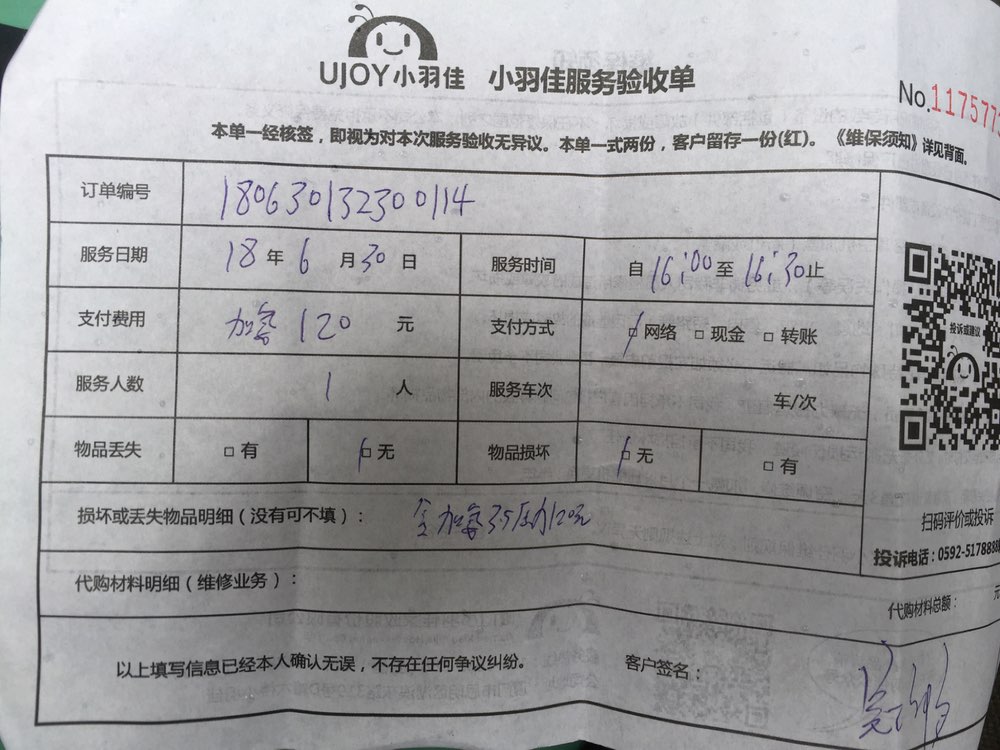 UJOY小羽佳 小羽佳服务验收单
No.117577
本单一经核签，即视为对本次服务验收无异议。本单一式两份，客户留存一份(红)。《维保须知》详见背面。
订单编号 180630132300114
服务日期 18年6月30日 服务时间 自16:00至16:30止
支付费用 加氟 120 元 支付方式 □网络 □现金 □转账
服务人数 1 人 服务车次 车/次
物品丢失 □有 □无 物品损坏 □无 □有
投诉或建议
损坏或丢失物品明细（没有可不填）： 加氟
扫码评价或投诉
投诉电话：0592-5178888
代购材料明细（维修业务）：
代购材料总额： 元
以上填写信息已经本人确认无误，不存在任何争议纠纷。 客户签名：